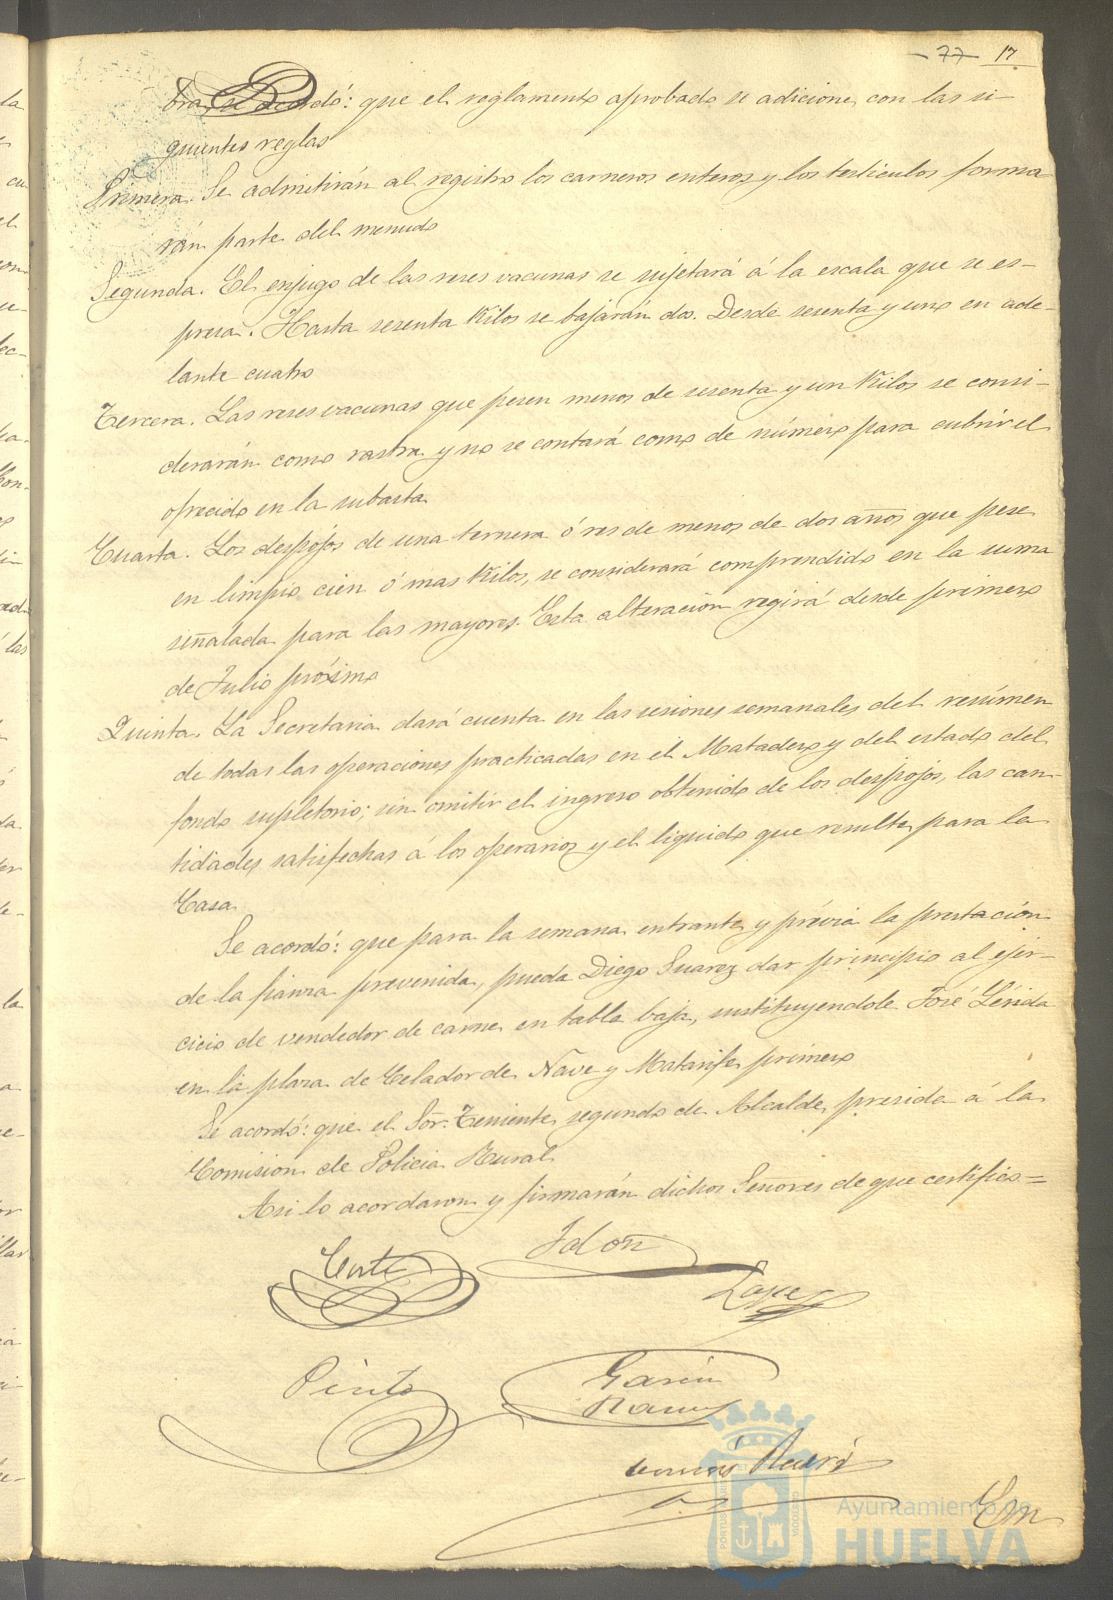 77 17
bra, se acordó: que el reglamento aprobado se adicione con las si-
guientes reglas
Primera. Se admitirán al registro los carneros enteros y los testiculos forma
rán parte del menudo
Segunda. El enjugo de las reses vacunas se sujetará á la escala que se es-
presa. Hasta sesenta Kilos se bajarán dos. Desde sesenta y uno en ade-
lante cuatro
Tercera. Las reses vacunas que pesen menos de sesenta y un Kilos se consi-
derarán como rastra y no se contará como de número para cubrir el
ofrecido en la subasta
Cuarta. Los despojos de una ternera ó res de menos de dos años que pese
en limpio cien ó mas Kilos, se considerará comprendido en la suma
señalada para las mayores. Esta alteración regirá desde primero
de Julio próximo
Quinta. La Secretaria dará cuenta en las sesiones semanales del resúmen
de todas las operaciones practicadas en el Matadero y del estado del
fondo supletorio; sin omitir el ingreso obtenido de los despojos, las can-
tidades satisfechas á los operarios y el liquido que resulte para la
Casa
Se acordó: que para la semana entrante y prévia la prestación
de la fianza prevenida, pueda Diego Suarez dar principio al ejer-
cicio de vendedor de carne en tabla baja, sustituyendole José Lérida
en la plaza de Celador de Nave y Matarife primero
Se acordó: que el Sor. Teniente segundo de Alcalde, presida á la
Comision de Policia Rural
Asi lo acordaron y firmarán dichos Señores de que certifico=
Lope
Pinto
Garcia
Ramos
Ayuntamiento de
HUELVA
En